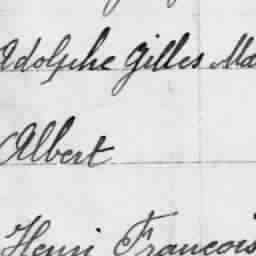 Adolphe Gilles Ma
Albert
Henri François